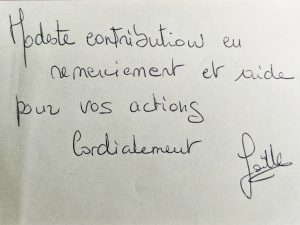 Modeste contribution en
remerciement et aide
pour vos actions
Cordialement